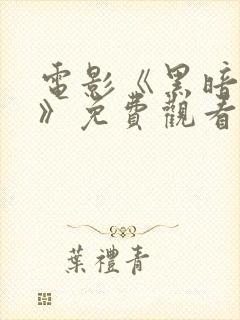 電影《黑暗
》免費觀看
葉禮青